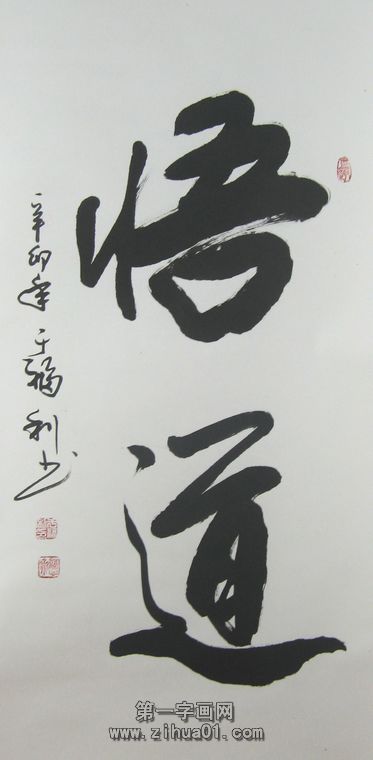 悟道
辛卯年于福利书
第一字画网
www.zihua01.com